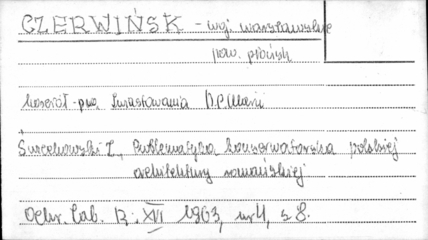 CZERWIŃSK - woj. warszawskie
pow. płońsk
kościół p.w. Zwiastowania N.P. Marii
Świechowski Z., Problematyka konserwatorska polskiej
architektury romańskiej
Ochr. Zab. R. XVI 1963, nr 4, s 8.